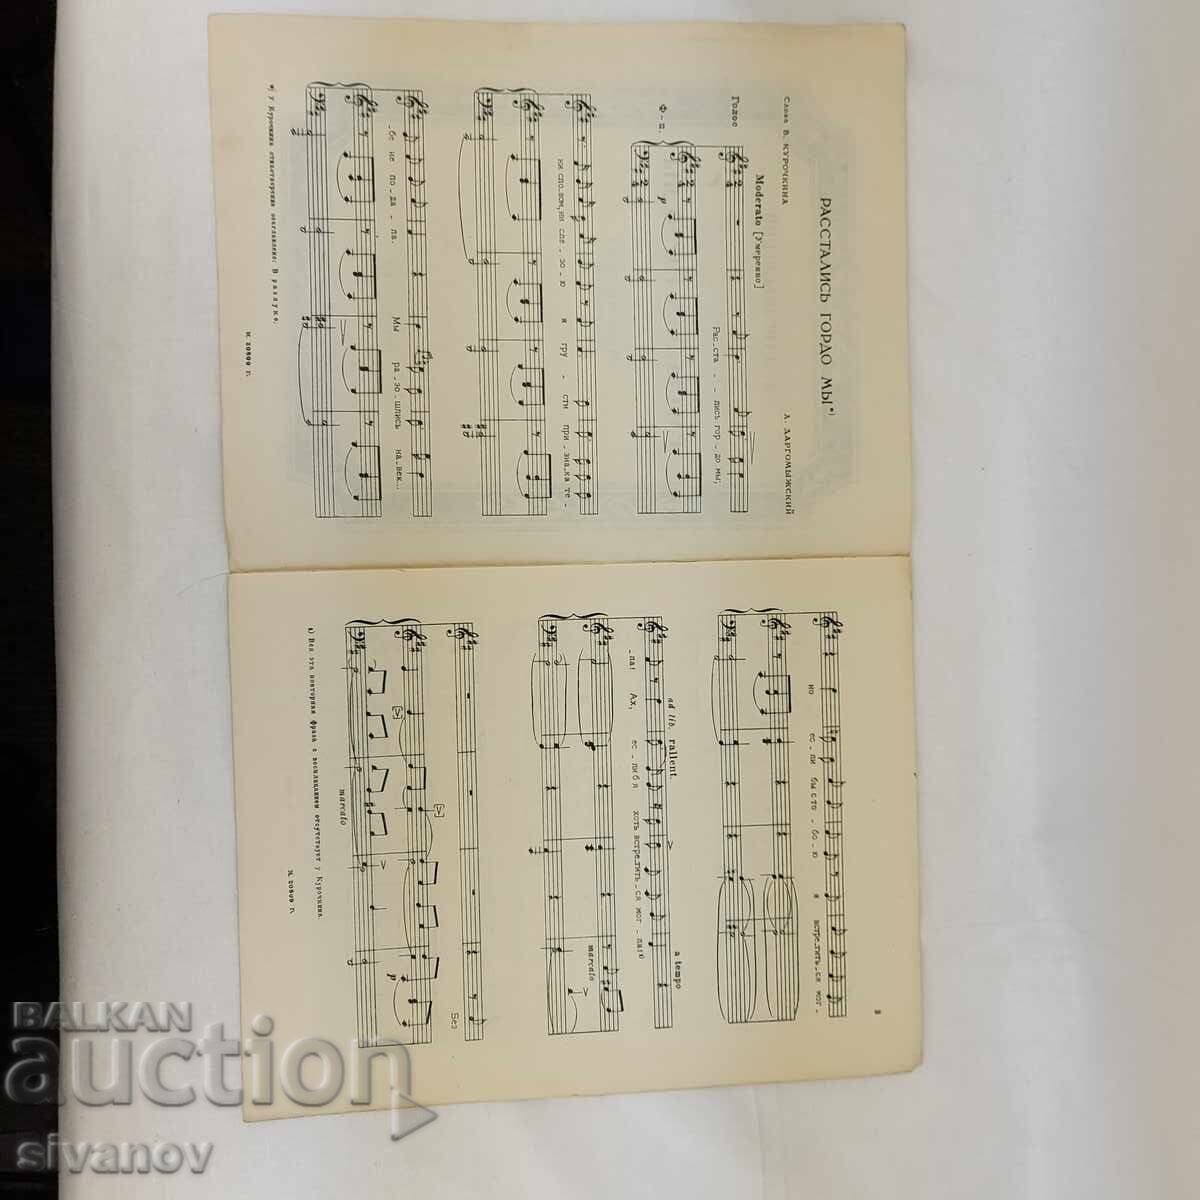 РАССТАЛИСЬ ГОРДО МЫ*)
Слова В. КУРОЧКИНА
А. ДАРГОМЫЖСКИЙ
Moderato [Умеренно]
Голос
Рас_ста - - лись гор_до мы;
Ф-п.
p
ни сло_вом, ни сле - зо - ю я гру - сти при_зна_ка те_
_бе не по_да - ла. Мы ра_зо_шлись на_век...
*) У Курочкина стихотворение озаглавлено: В разлуке.
М. 20809 Г.
3
но ес_ли бы с то - бо_ю я встре_тить_ся мог_
ad lib. rallent.
a tempo
_ла! Ах, ес_ли б я хоть встре_тить_ся мог - ла!
marcato
Без
marcato
p
Вся эта повторная фраза с восклицанием отсутствует у Курочкина.
М. 20809 Г.
BALKAN
auction
sivanov